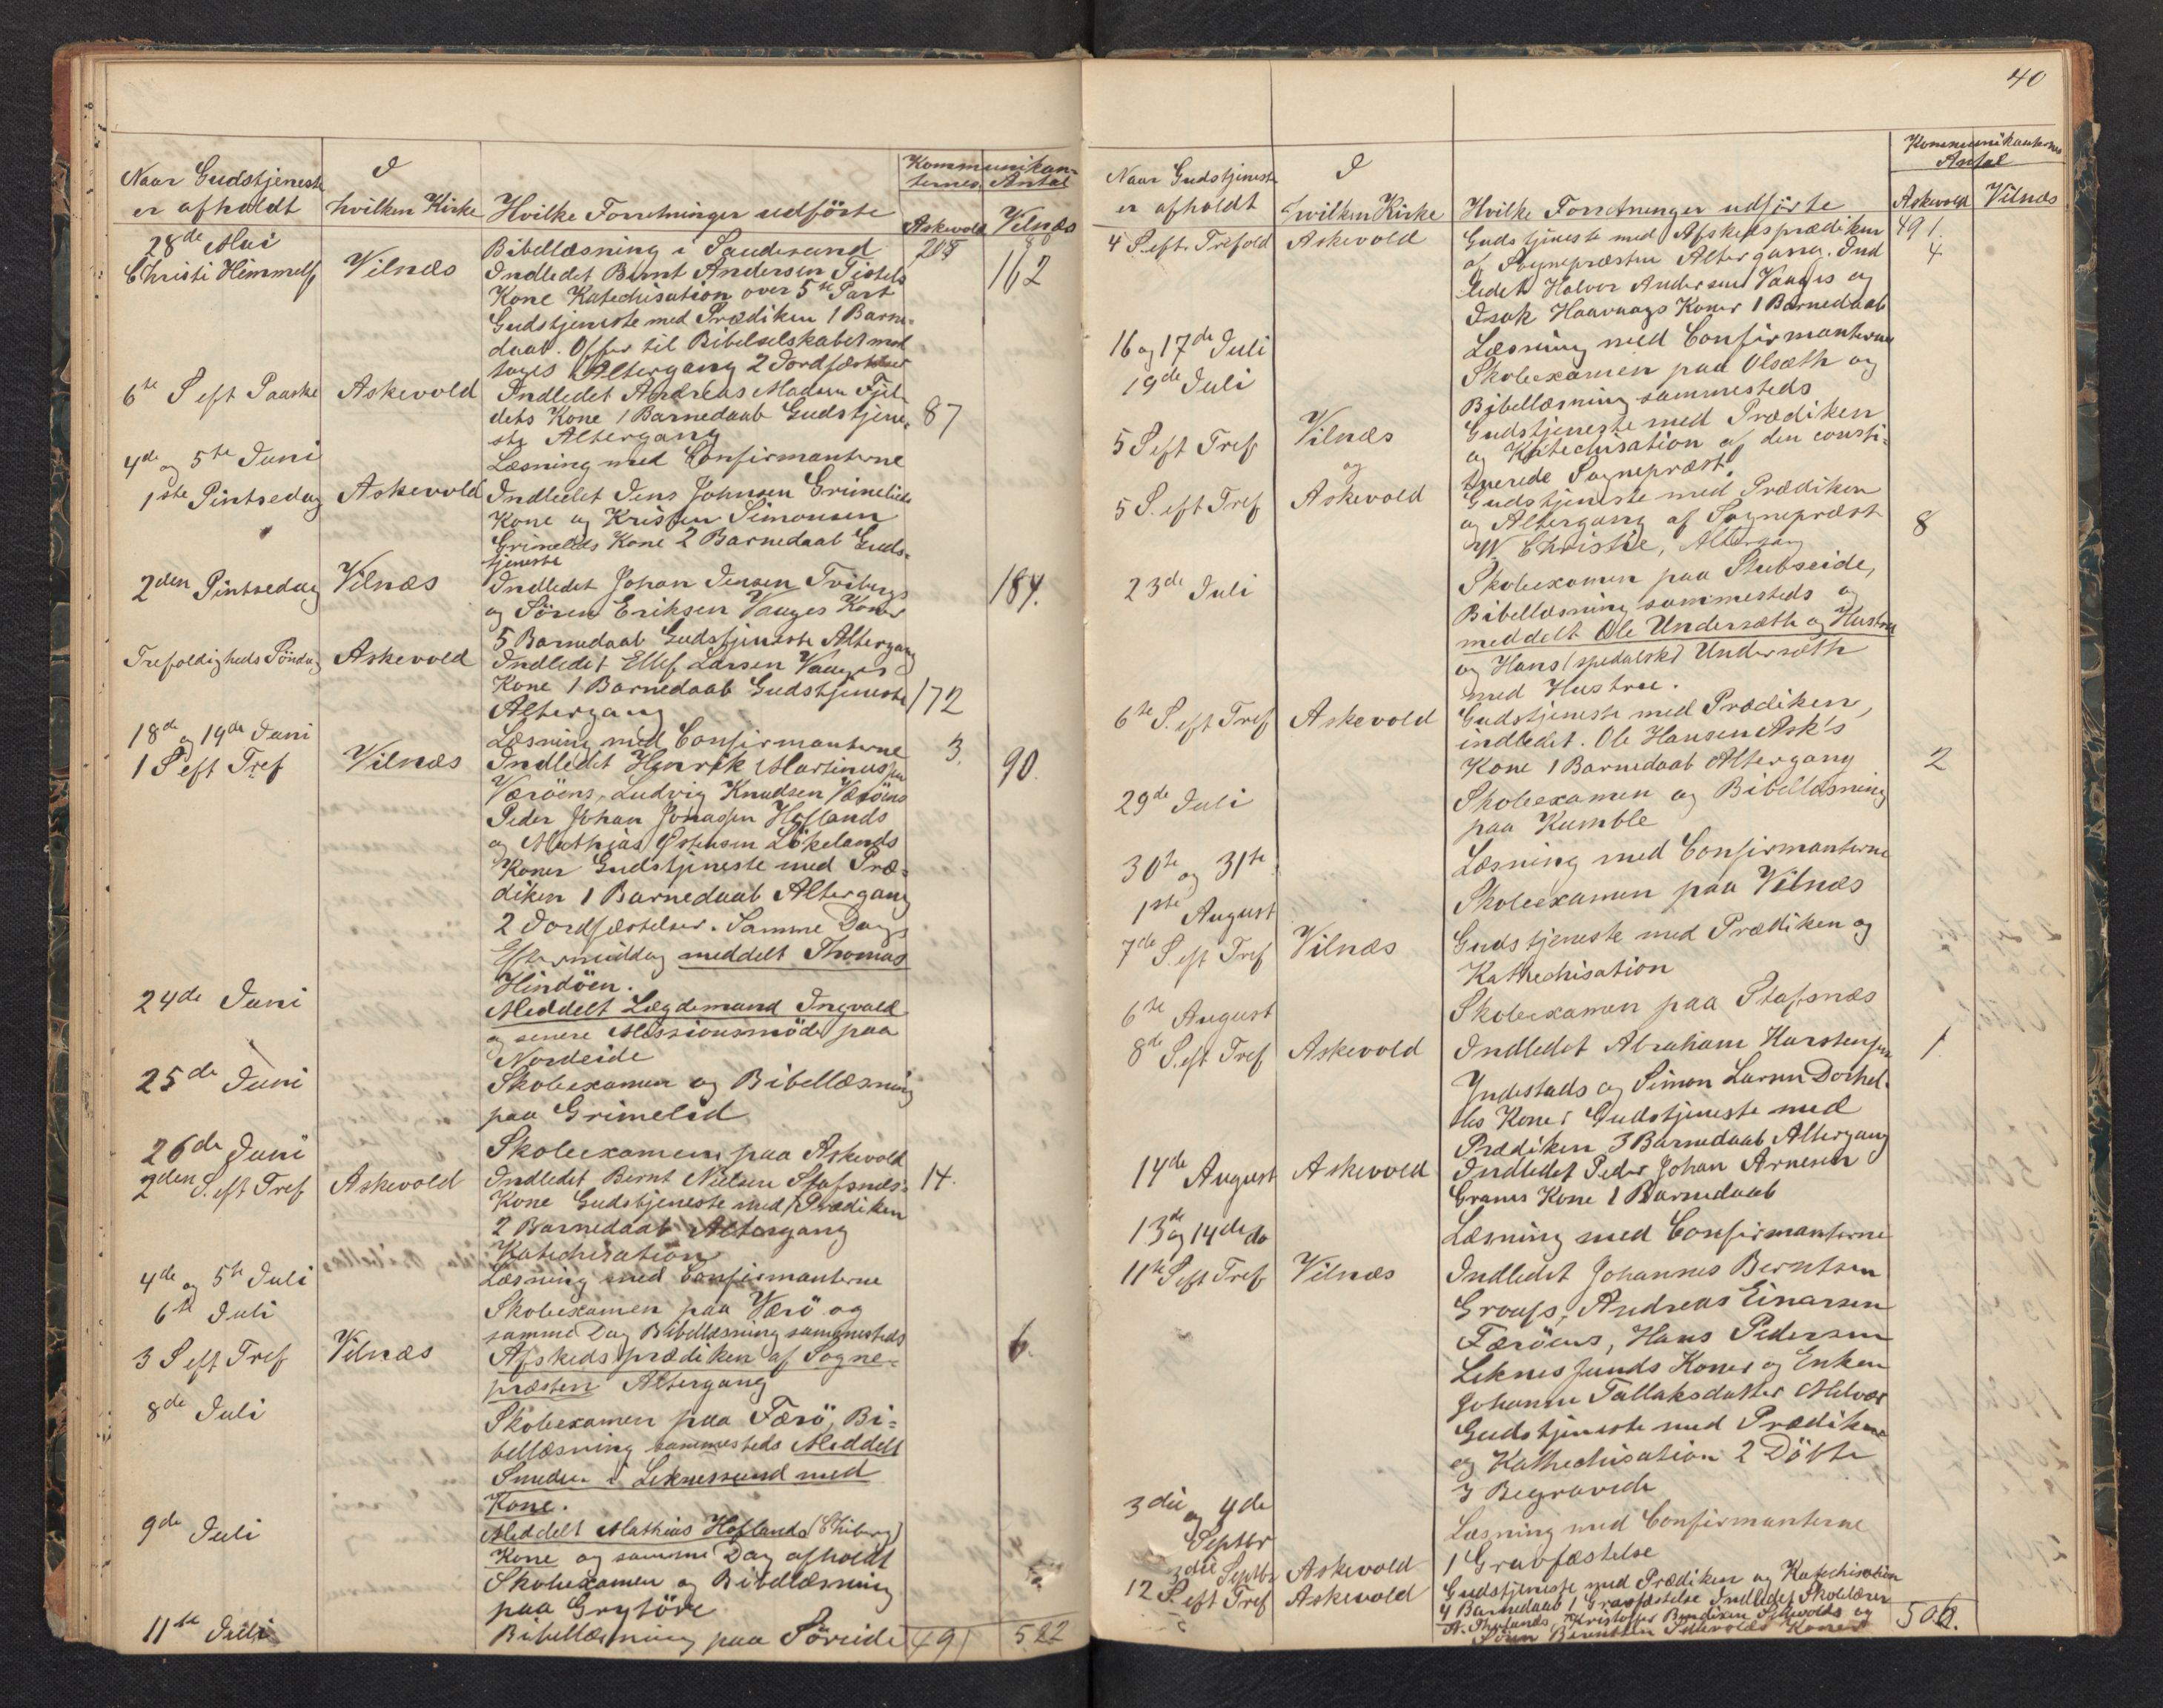 Naar Gudstjeneste
er afholdt
I
hvilken Kirke
Hvilke Forretninger udførte
Kommunikan-
ternes Antal
Askevold Vilnæs
28de Mai Bibellæsning i Saudesund 205 80
Christi Himmelf Vilnæs Indledet Bernt Andersen Tistels 162
Kone Katechisation over 5te Part
Gudstjeneste med Prædiken 1 Barne-
daab. Offer til Bibelselskabet mod
toges Altergang 2 Jordfæstelser
6te S eft Paaske Askevold Indledet Andreas Madsen Fjel-
dets Kone 1 Barnedaab Gudstjene- 87
ste Altergang
4de og 5te Juni Læsning med Confirmanterne
1ste Pintsedag Askevold Indledet Jens Johnsen Grimelids
Kone og Kristen Simonsen
Grimelids Kone 2 Barnedaab Guds-
tjeneste
2den Pintsedag Vilnæs Indledet Johan Jensen Tviberg 184.
og Sören Eriksen Vaages Koner
5 Barnedaab Gudstjeneste Altergang
Trefoldigheds Söndag Askevold Indledet Ellef Larsen Vaages
Kone 1 Barnedaab Gudstjeneste 172
Altergang
18de og 19de Juni Læsning med Confirmanterne 3.
1 S eft Tref Vilnæs Indledet Henrik Martinussen 90.
Væröens, Ludvig Knudsen Væröens
Peder Johan Jonassen Hoflands
og Mathias Østensen Lökelands
Koner Gudstjeneste med Præ-
diken 1 Barnedaab Altergang
2 Jordfæstelser. Samme Dags
Eftermiddag meddelt Thomas
Hindöen.
24de Juni Meddelt Lægdemand Ingvald
og senere Missionsmöde paa
Nordeide
25de Juni Skoleexamen og Bibellæsning
paa Grimelid
26de Juni Skoleexamen paa Askevold
2den S. eft Tref Askevold Indledet Bernt Nielsen Stafsnes- 14.
Kone Gudstjeneste med Prædiken
2 Barnedaab Altergang
Katechisation
4de og 5te Juli Læsning med Confirmanterne
6te Juli Skoleexamen paa Værö og
samme Dag Bibellæsning sammesteds
3 S eft Tref Vilnæs Afskedsprædiken af Sogne- 6.
præsten Altergang
8de Juli Skoleexamen paa Færö, Bi-
bellæsning sammesteds Meddelt
Smeden i Leknessund med
Kone.
9de Juli Meddelt Mathias Hoflands
Kone og samme Dag afholdt
Skoleexamen og Bibellæsning
paa Grytöre
11te Juli Bibellæsning paa Söreide 491 522
40
Naar Gudstjeneste
er afholdt
I
hvilken Kirke
Hvilke Forretninger udførte
Kommunikanternes
Antal
Askevold Vilnæs
4 S. eft. Trefold Askevold Gudstjeneste med Afskedsprædiken 491.
af Sognepræsten Altergang. Ind 4
ledet Halvor Andersen Vaages og
Isak Haavaags Koner 1 Barnedaab
16 og 17de Juli Læsning med Confirmanterne
19de Juli Skoleexamen paa Olsæth og
Bibellæsning sammesteds
5 S eft Tref Vilnæs Gudstjeneste med Prædiken
og Katechisation af den consti-
tuerede Sognepræst.
5 S. eft Tref og Askevold Gudstjeneste med Prædiken
og Altergang af Sognepræst 8
W. Christie, Altergang
23de Juli Skoleexamen paa Stubseide,
Bibellæsning sammesteds og
meddelt Ole Undersæth og Hustru
og Hans (spedalsk) Undersæth
med Hustrue.
6te S. eft Tref Askevold Gudstjeneste med Prædiken,
indledet. Ole Hansen Ask's
Kone 1 Barnedaab Altergang 2
29de Juli Skoleexamen og Bibellæsning
paa Kumble
30te og 31te Læsning med Confirmanterne
1ste August Skoleexamen paa Vilnæs
7de S. eft Tref Vilnæs Gudstjeneste med Prædiken og
Kathechisation
6te August Skoleexamen paa Stafsnæs
8de S. eft Tref Askevold Indledet Abraham Karstensen 1.
Yndestads og Simon Larsen
Koner Gudstjeneste med
Prædiken 3 Barnedaab Altergang
14de August Askevold Indledet Peder Johan Arnesen
Kone 1 Barnedaab
13de og 14de do Læsning med Confirmanterne
11te S eft Tref Vilnæs Indledet Johannes Berntsen
Andreas Einarsen
Færöens, Hans Pedersen
Leknessunds Koner og Enken
Johanne Tallaksdatter
Gudstjeneste med Prædiken
og Kathechisation 2 Döbte
3 Begravede
3die og 4de
Septbr Læsning med Confirmanterne
3die Septbr Askevold 1 Gravfæstelse
12 S. eft Tref Askevold Gudstjeneste med Prædiken og Katechisation
4 Barnedaab 1 Gravfæstelse Indledet Skolelærer
Kristoffer Bendixen Askevolds og
Sören Berentsen Askevolds Koner 506.